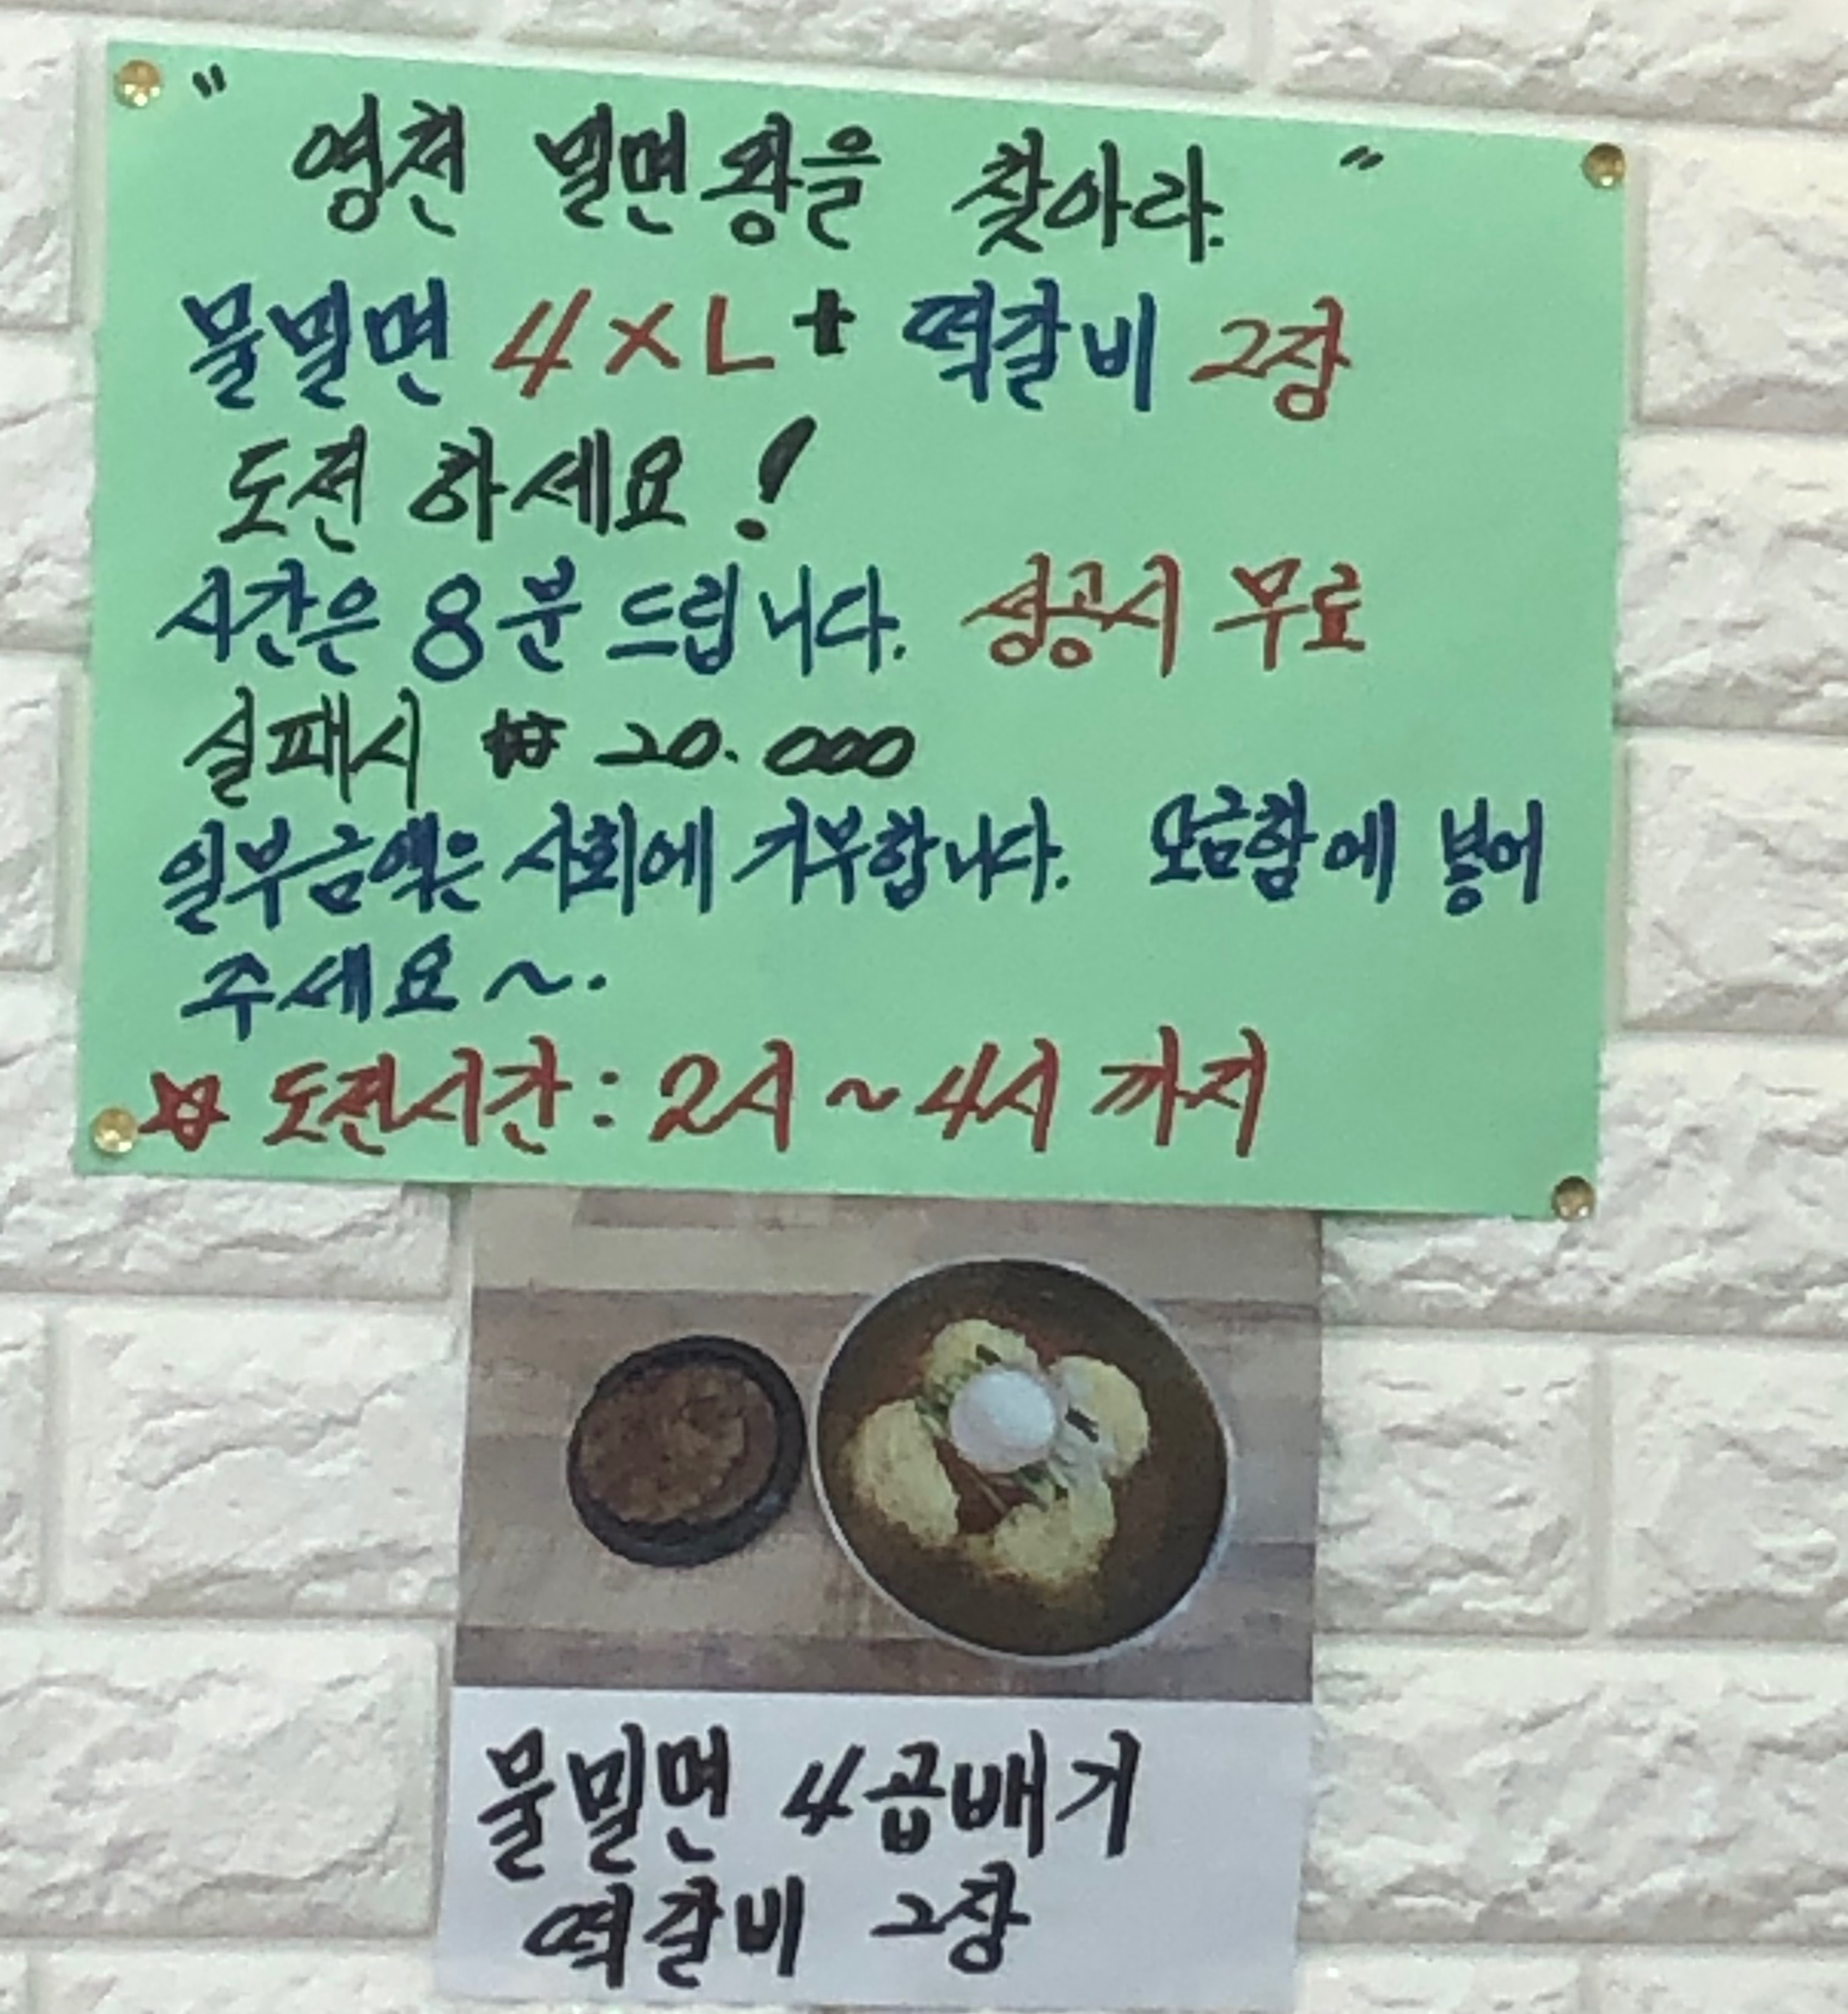 " 영천 밀면왕을 찾아라. "
물밀면 4XL + 떡갈비 2장
도전 하세요!
시간은 8분 드립니다. 성공시 무료
실패시 ₩ 20.000
일부금액은 사회에 기부합니다. 모금함에 넣어
주세요~.
☆ 도전시간: 2시~4시 까지
물밀면 4곱배기
떡갈비 2장